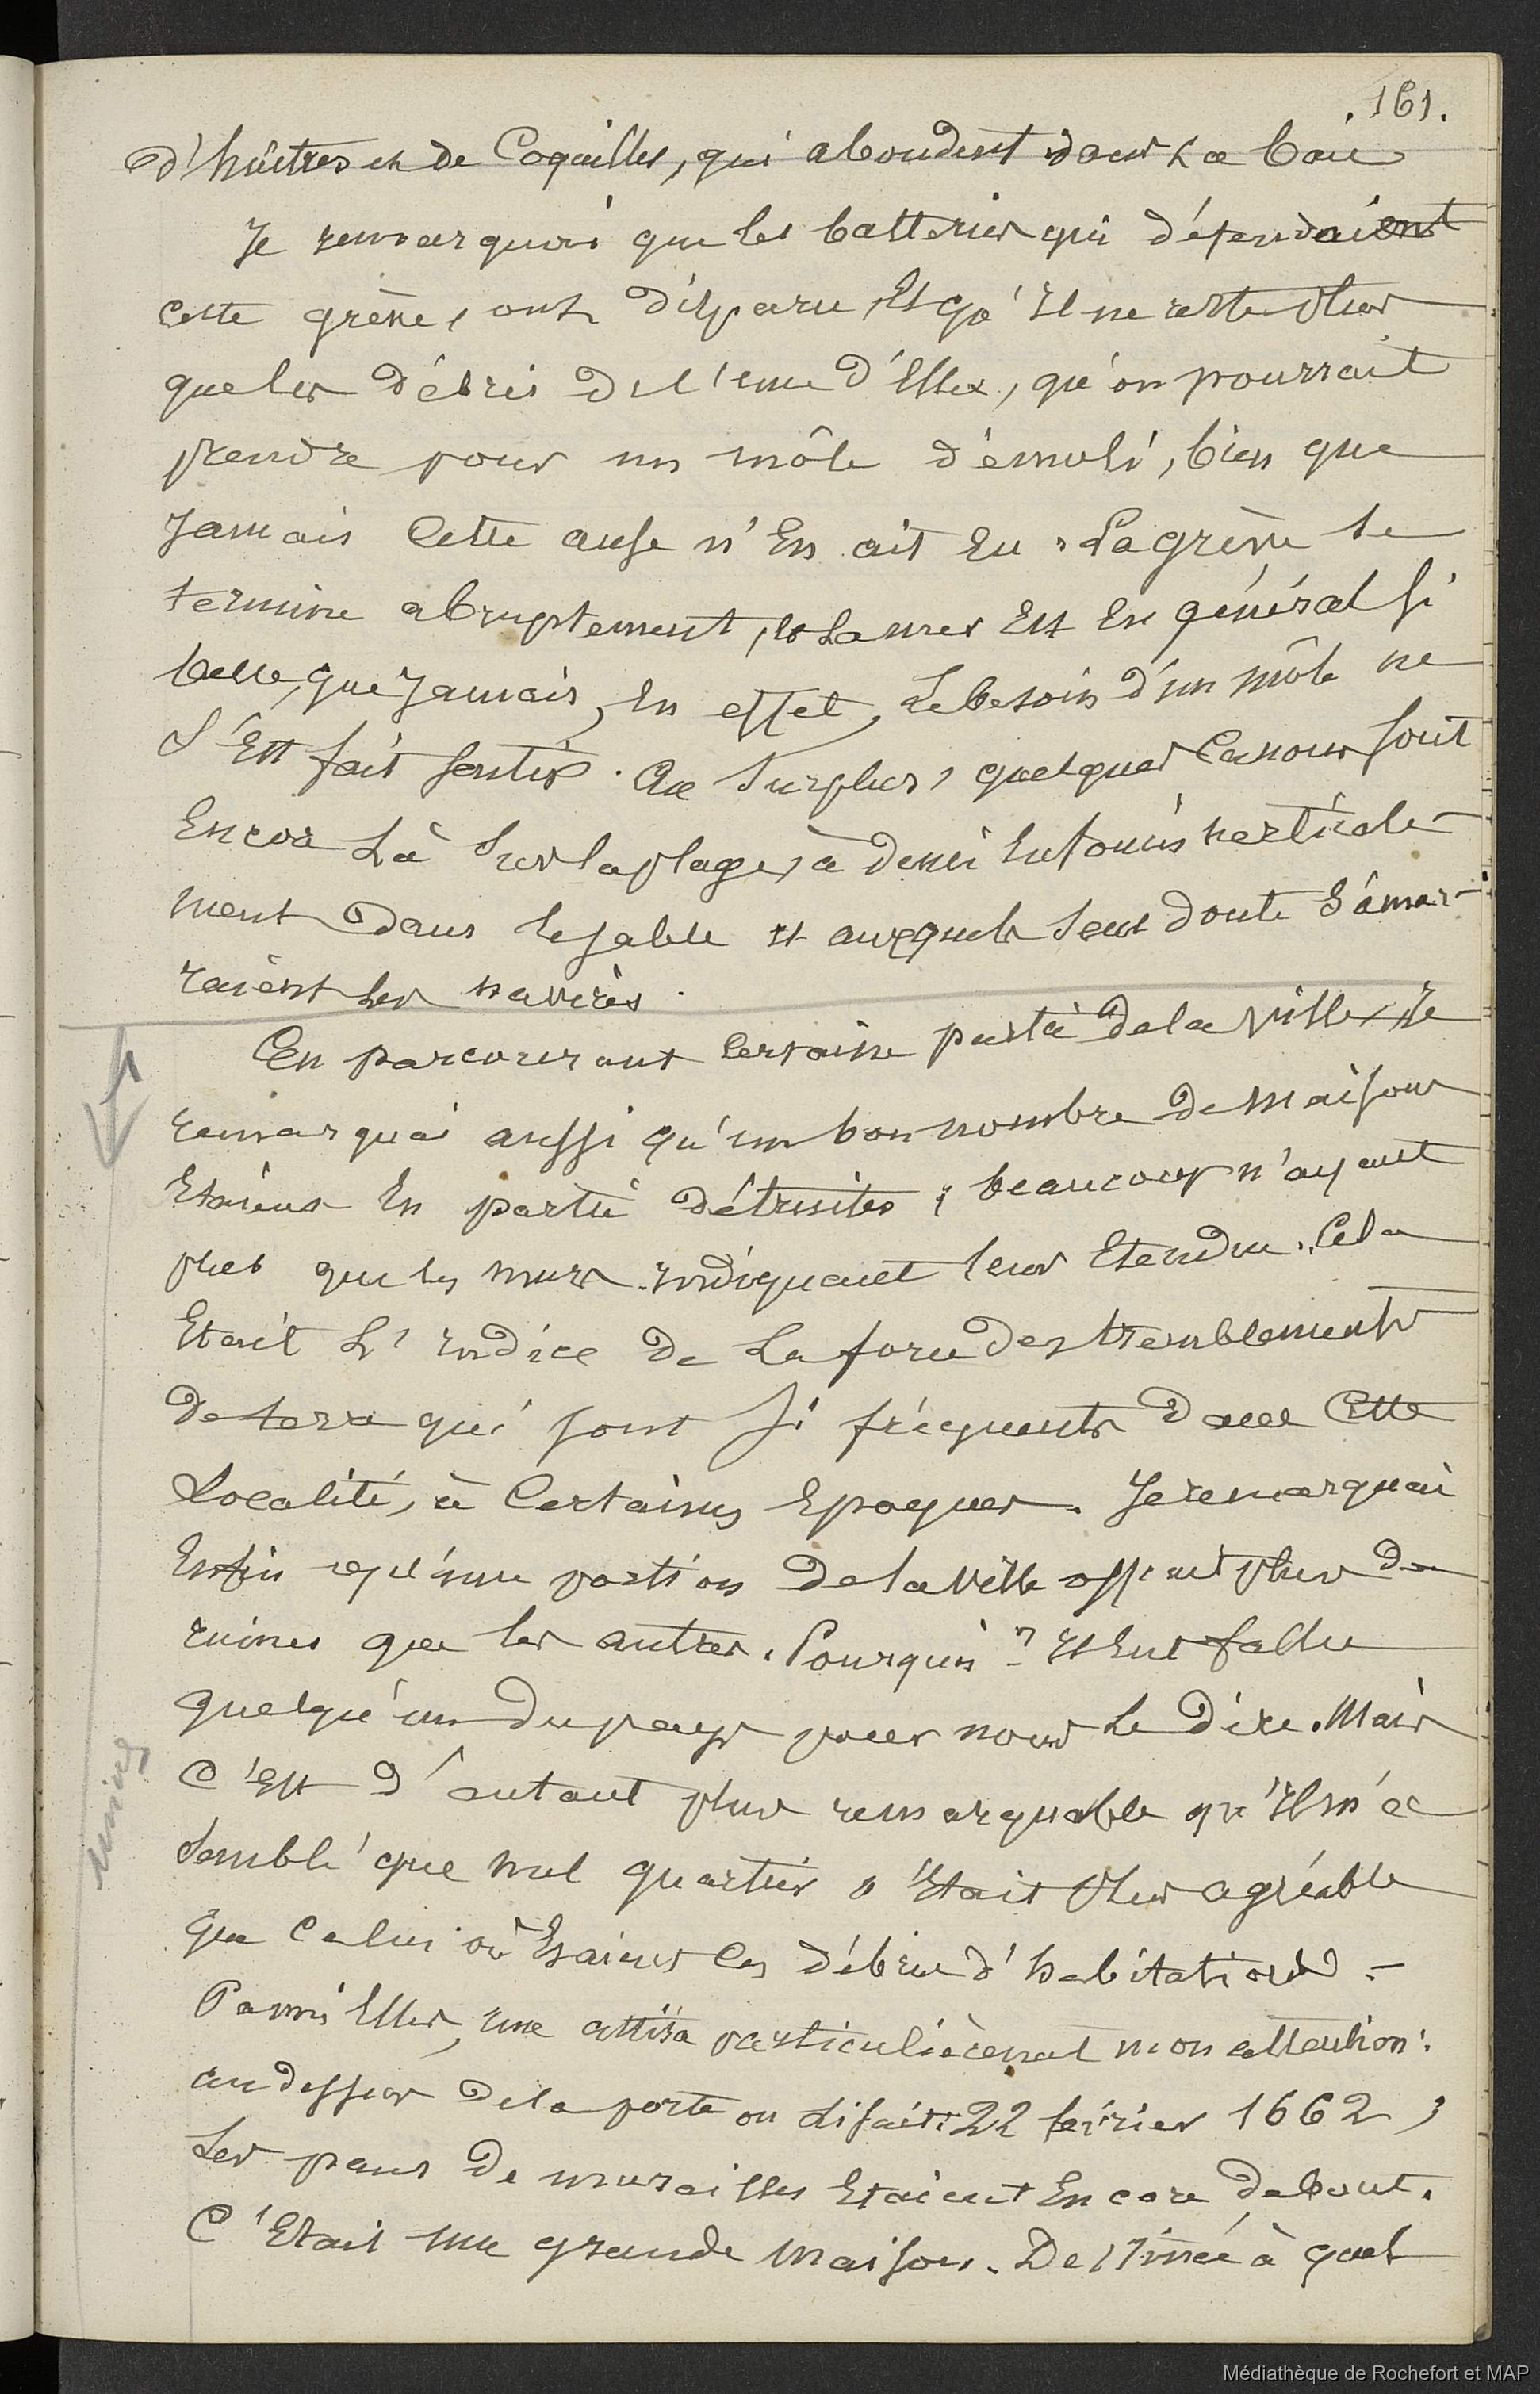 . 161.
d'huîtres et de Coquilles, qui abondent dans La baie
Je remarquai que les batteries qui défendaient
cette grève, ont disparu, Et qu'Il ne reste plus
que les débris de l'une d'Elles, qu'on pourrait
prendre pour un môle démoli, bien que
Jamais Cette anse n'En ait Eu. La grève se
termine abruptement, Et La mer Est En général si
belle, que Jamais, En effet, Le besoin d'un môle ne
S'Est fait sentir. Au Surplus, quelques Canons sont
Encore Là Sur la plage, à demi Enfouis verticale-
ment Dans le sable et auxquels sans doute S'amar-
raient Les navires.
En parcourant Certaine partie de la ville, Je
remarquai aussi qu'un bon nombre de Maisons
Etaient En partie détruites ; beaucoup n'ayant
plus que les murs Indiquant leur Etendue. Cela
Etait L'Indice de La force des tremblements
de terre qui sont si fréquents Dans Cette
Localité, à Certaines Epoques. Je remarquai
Enfin qu'une portion de la Ville offrait plus de
ruines que les autres. Pourquoi ? Il Eut fallu
quelqu'un du pays pour nous Le Dire. Mais
C'Est d'autant plus remarquable qu'Il m'a
Semblé que nul quartier n'Etait plus agréable
que Celui où Etaient Ces débris d'habitations. -
Parmi Elles, une attira particulièrement mon attention :
au dessus de la porte on lisait : 22 février 1662 ;
Les pans de murailles Etaient Encore debout.
C'Etait une grande Maison. Destinée à quel
ruines
Médiathèque de Rochefort et MAP